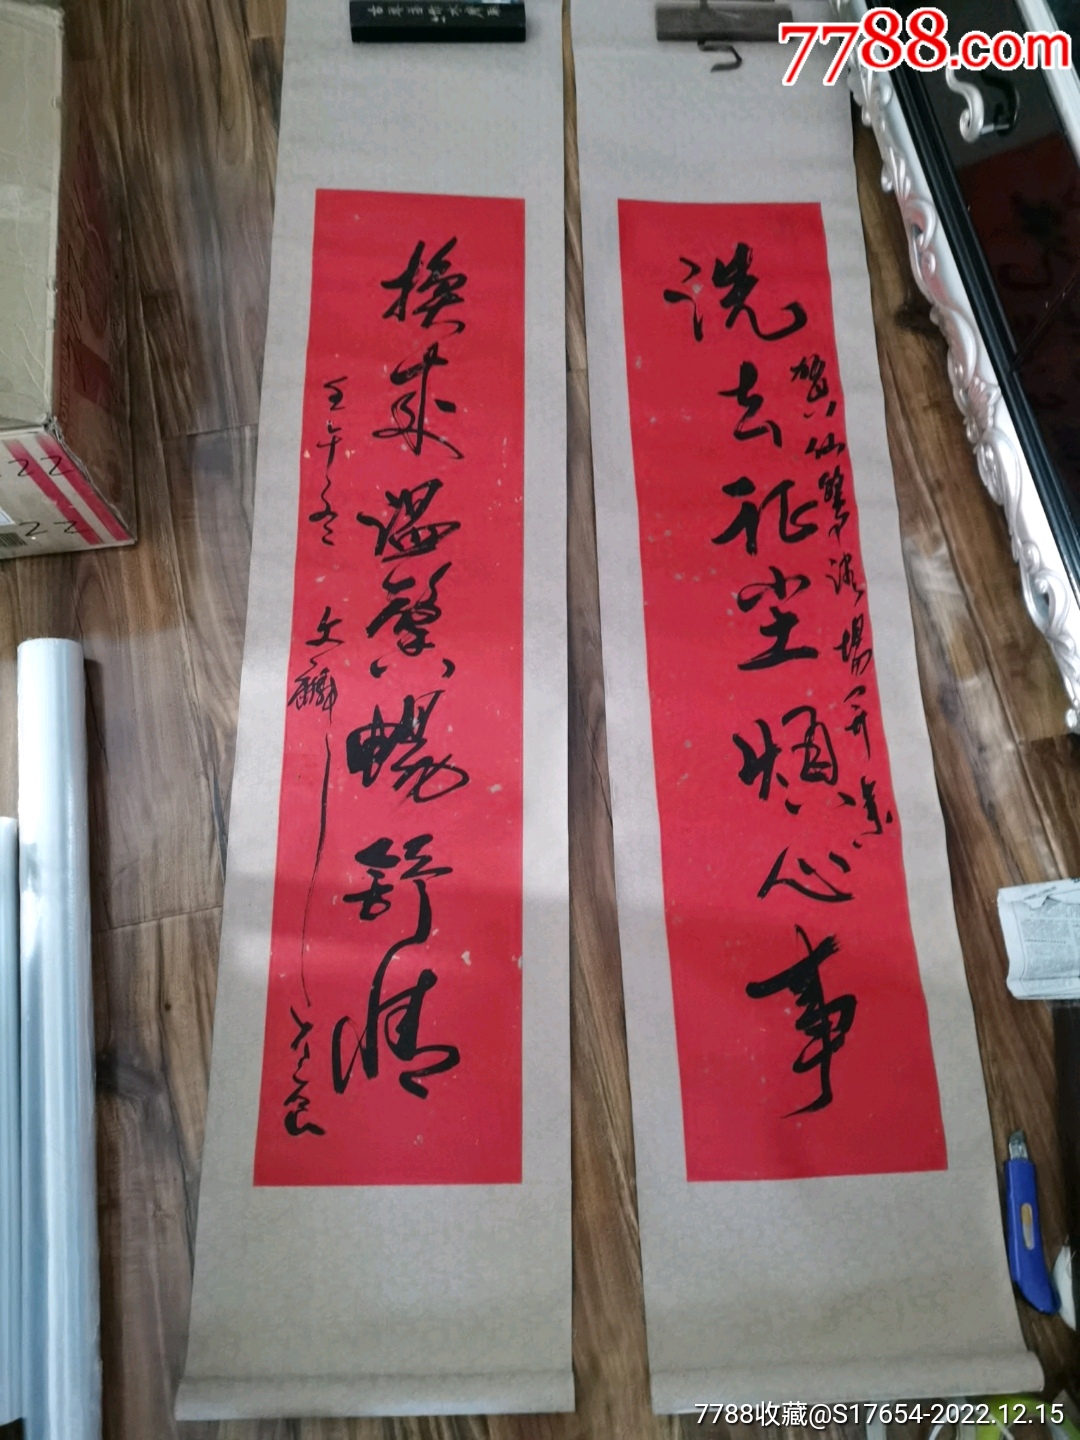 7788.com
洗去征尘烦心事
贺仙鹤浴场开业
换来温馨畅舒情
壬午冬
文麟
22
22
7788收藏@S17654-2022.12.15